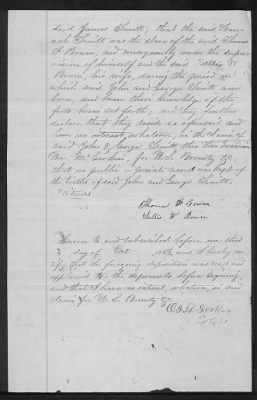 said James Truitt, that the said Han-
nah Truitt was the slave of the said Thomas
F. Bowen, and consequently under the super-
vision of himself and the said Sallie W
Bowen, his wife, during the period in
which said John and George Truitt, was
born, and hence their knowledge of the
facts herein set forth; and they further
declare that they reside as aforesaid and
have no interest, whatever, in the claim of
said John & George Truitt this their Guardian
for U.S. Bounty &c.
that no public or private record was kept of
the births of said John and George Truitt.
Witness
Thomas F Bowen
Sallie W Bowen
Sworn to and subscribed before me this
3 day of Oct and I hereby
certify that the foregoing deposition was read and
explained to the deponents before signing,
and that I have no interest, whatever, in said
claim for U.S. Bounty &c